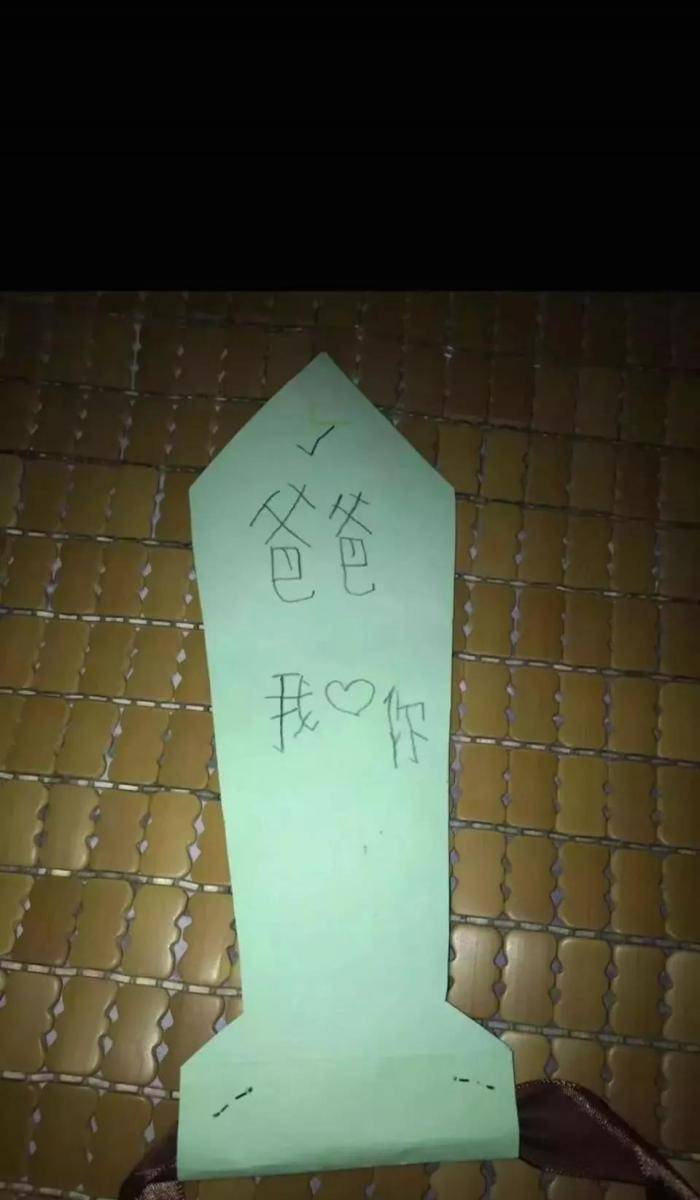 爸爸
我♡你